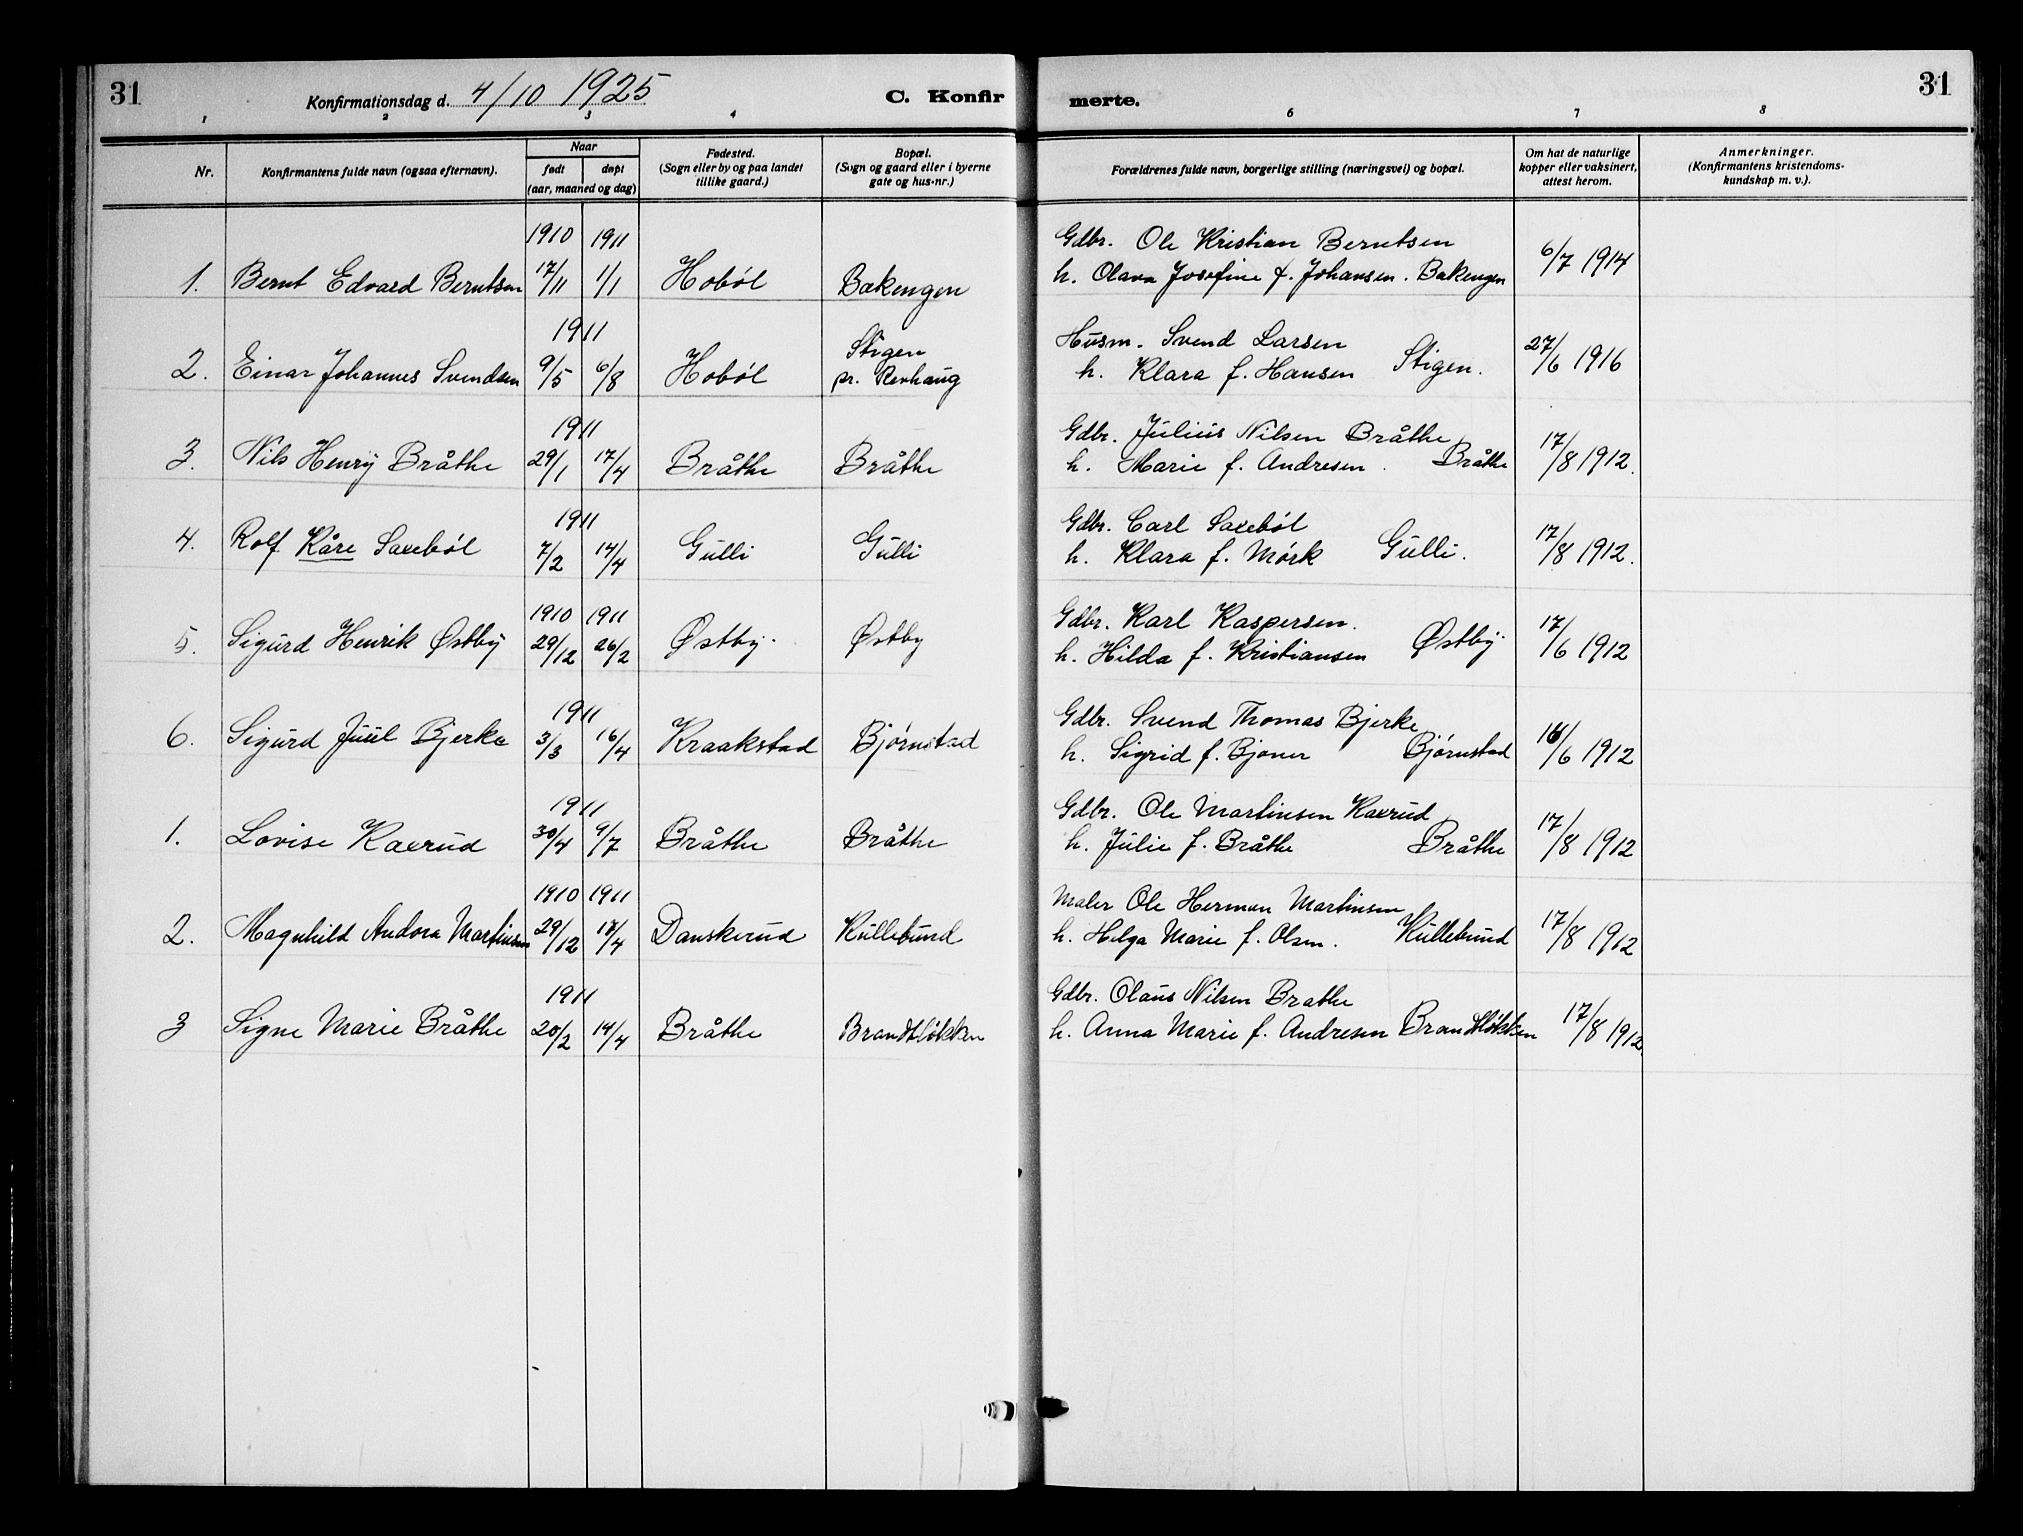 31
Konfirmationsdag d. 4/10 1925
C. Konfirmerte.
31
1 2 3 4 6 7 8
Nr.
Konfirmantens fulde navn (ogsaa efternavn).
Naar
født døpt
(aar, maaned og dag)
Fødested.
(Sogn eller by og paa landet
tillike gaard.)
Bopæl.
(Sogn og gaard eller i byerne
gate og hus-nr.)
Forældrenes fulde navn, borgerlige stilling (næringsvei) og bopæl.
Om hat de naturlige
kopper eller vaksinert,
attest herom.
Anmerkninger.
(Konfirmantens kristendoms-
kundskap m. v.).
1910 1911 Gdbr. Ole Kristian Berntsen
1. Bernt Edvard Berntsen 17/11 1/1 Hobøl Bakengen h. Olava Josefine f. Johansen. Bakengen 6/7 1914
1911 Stigen Husm. Svend Larsen
2. Einar Johannes Svendsen 9/5 6/8 Hobøl pr. Revhaug h. Klara f. Hansen Stigen. 27/6 1916
1911 Gdbr. Julius Nilsen Bråthe
3. Nils Henry Bråthe 29/1 17/4 Bråthe Bråthe h. Marie f. Andresen. Bråthe 17/8 1912.
1911 Gdbr. Carl Saxebøl
4. Rolf Kåre Saxebøl 7/2 14/4 Gulli Gulli h. Klara f. Mørk Gulli. 17/8 1912.
1910 1911 Gdbr. Karl Kaspersen.
5. Sigurd Henrik Østby 29/12 26/2 Østby. Østby h. Hilda f. Kristiansen Østby. 17/6 1912
1911 Gdbr. Svend Thomas Bjerke
6. Sigurd Juul Bjerke 3/3 16/4 Kraakstad Bjørnstad h. Sigrid f. Bjoner Bjørnstad /6 1912
1911 Gdbr. Ole Martinsen Kaxrud
1. Lovise Kaxrud 30/4 9/7 Bråthe Bråthe h. Julie f. Bråthe Bråthe 17/8 1912
1910 1911 Maler Ole Herman Martinsen
2. Magnhild Andora Martinsen 29/12 17/4 Danskerud Kullebund h. Helga Marie f. Olsen. Kullebund 17/8 1912
1911 Gdbr. Olaus Nilsen Brathe
3 Signe Marie Bråthe 20/2 14/4 Bråthe Brandtløkken h. Anna Marie f. Andresen Brandtløkken 17/8 1912.